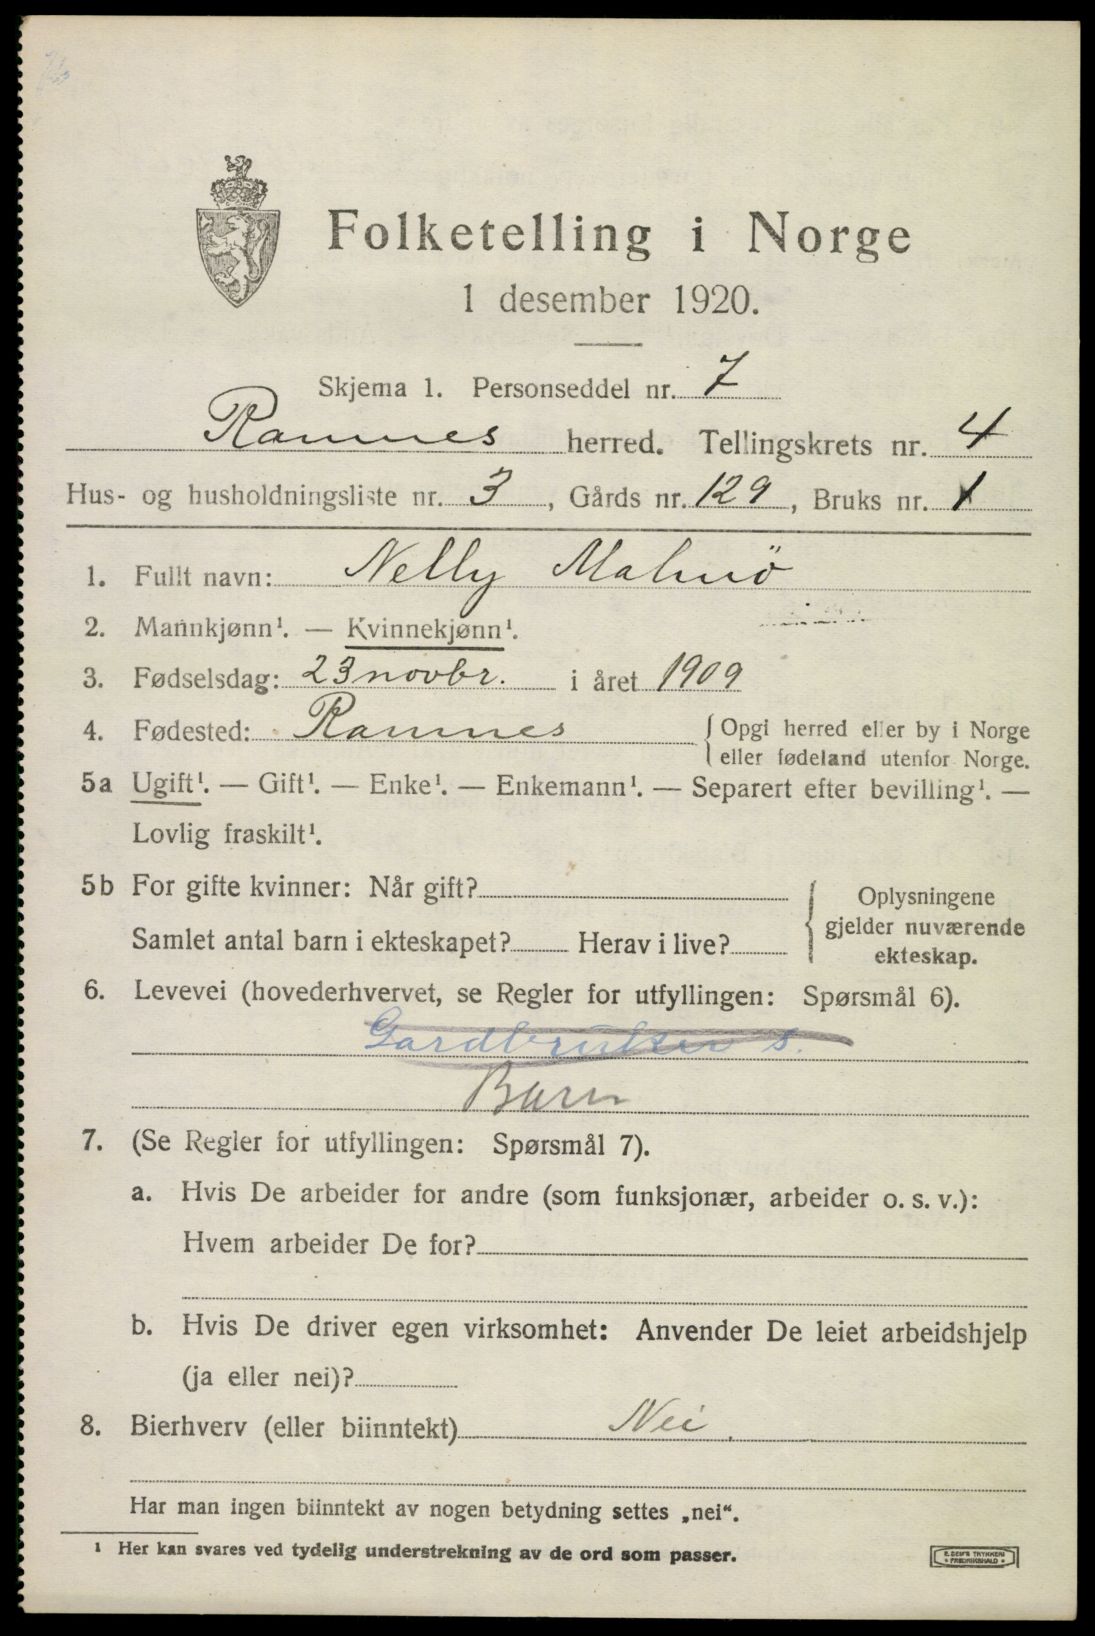 Folketelling i Norge
1 desember 1920.
Skjema 1. Personseddel nr. 7
Ramnes herred. Tellingskrets nr. 4
Hus- og husholdningsliste nr. 3, Gårds nr. 129, Bruks nr. 1
1. Fullt navn: Nelly Malmö
2. Mannkjønn¹. — Kvinnekjønn¹.
3. Fødselsdag: 23 novbr. i året 1909
4. Fødested: Ramnes { Opgi herred eller by i Norge
eller fødeland utenfor Norge.
5a Ugift¹. — Gift¹. — Enke¹. — Enkemann¹. — Separert efter bevilling¹. —
Lovlig fraskilt¹.
5b For gifte kvinner: Når gift?
Samlet antal barn i ekteskapet? Herav i live?
{ Oplysningene
gjelder nuværende
ekteskap.
6. Levevei (hovederhvervet, se Regler for utfyllingen: Spørsmål 6).
Gardbruker s.
Barn
7. (Se Regler for utfyllingen: Spørsmål 7).
a. Hvis De arbeider for andre (som funksjonær, arbeider o. s. v.):
Hvem arbeider De for?
b. Hvis De driver egen virksomhet: Anvender De leiet arbeidshjelp
(ja eller nei)?
8. Bierhverv (eller biinntekt) Nei.
Har man ingen biinntekt av nogen betydning settes „nei“.
¹ Her kan svares ved tydelig understrekning av de ord som passer.
E. SEM'S TRYKKERI
• FREDRIKSHALD •